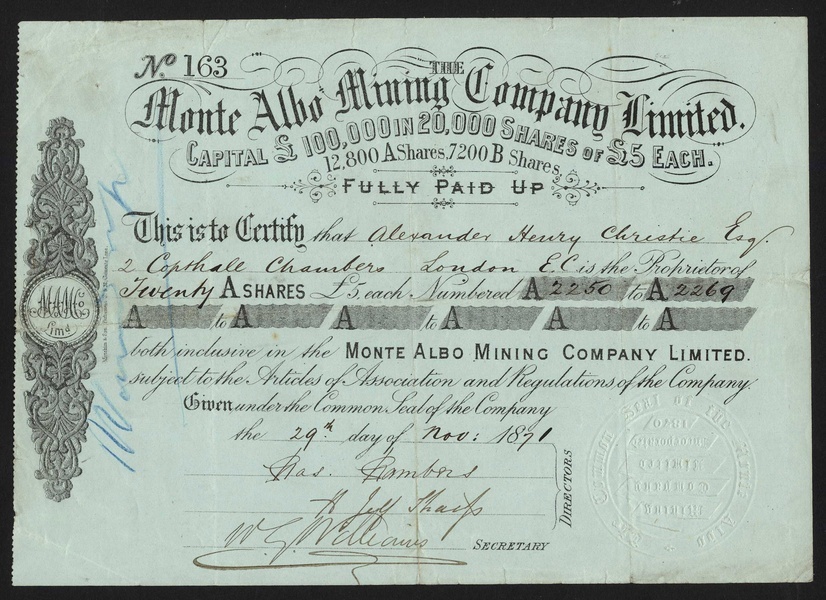 No. 163
THE
Monte Albo Mining Company Limited.
CAPITAL £100,000 IN 20,000 SHARES OF £5 EACH.
12,800 A Shares, 7200 B Shares.
FULLY PAID UP
This is to Certify that Alexander Henry Christie Esq.
2 Copthall Chambers London E.C is the Proprietor of
Twenty A SHARES £5, each Numbered A 2250 to A 2269
A to A A to A A to A
both inclusive in the MONTE ALBO MINING COMPANY LIMITED.
subject to the Articles of Association and Regulations of the Company.
Given under the Common Seal of the Company
the 29th day of Nov: 1871
DIRECTORS
W. G. Williams
SECRETARY
MAMCo
Limd
The Common Seal of the Monte Albo
Mining
Company
Limited
Incorporated
1870